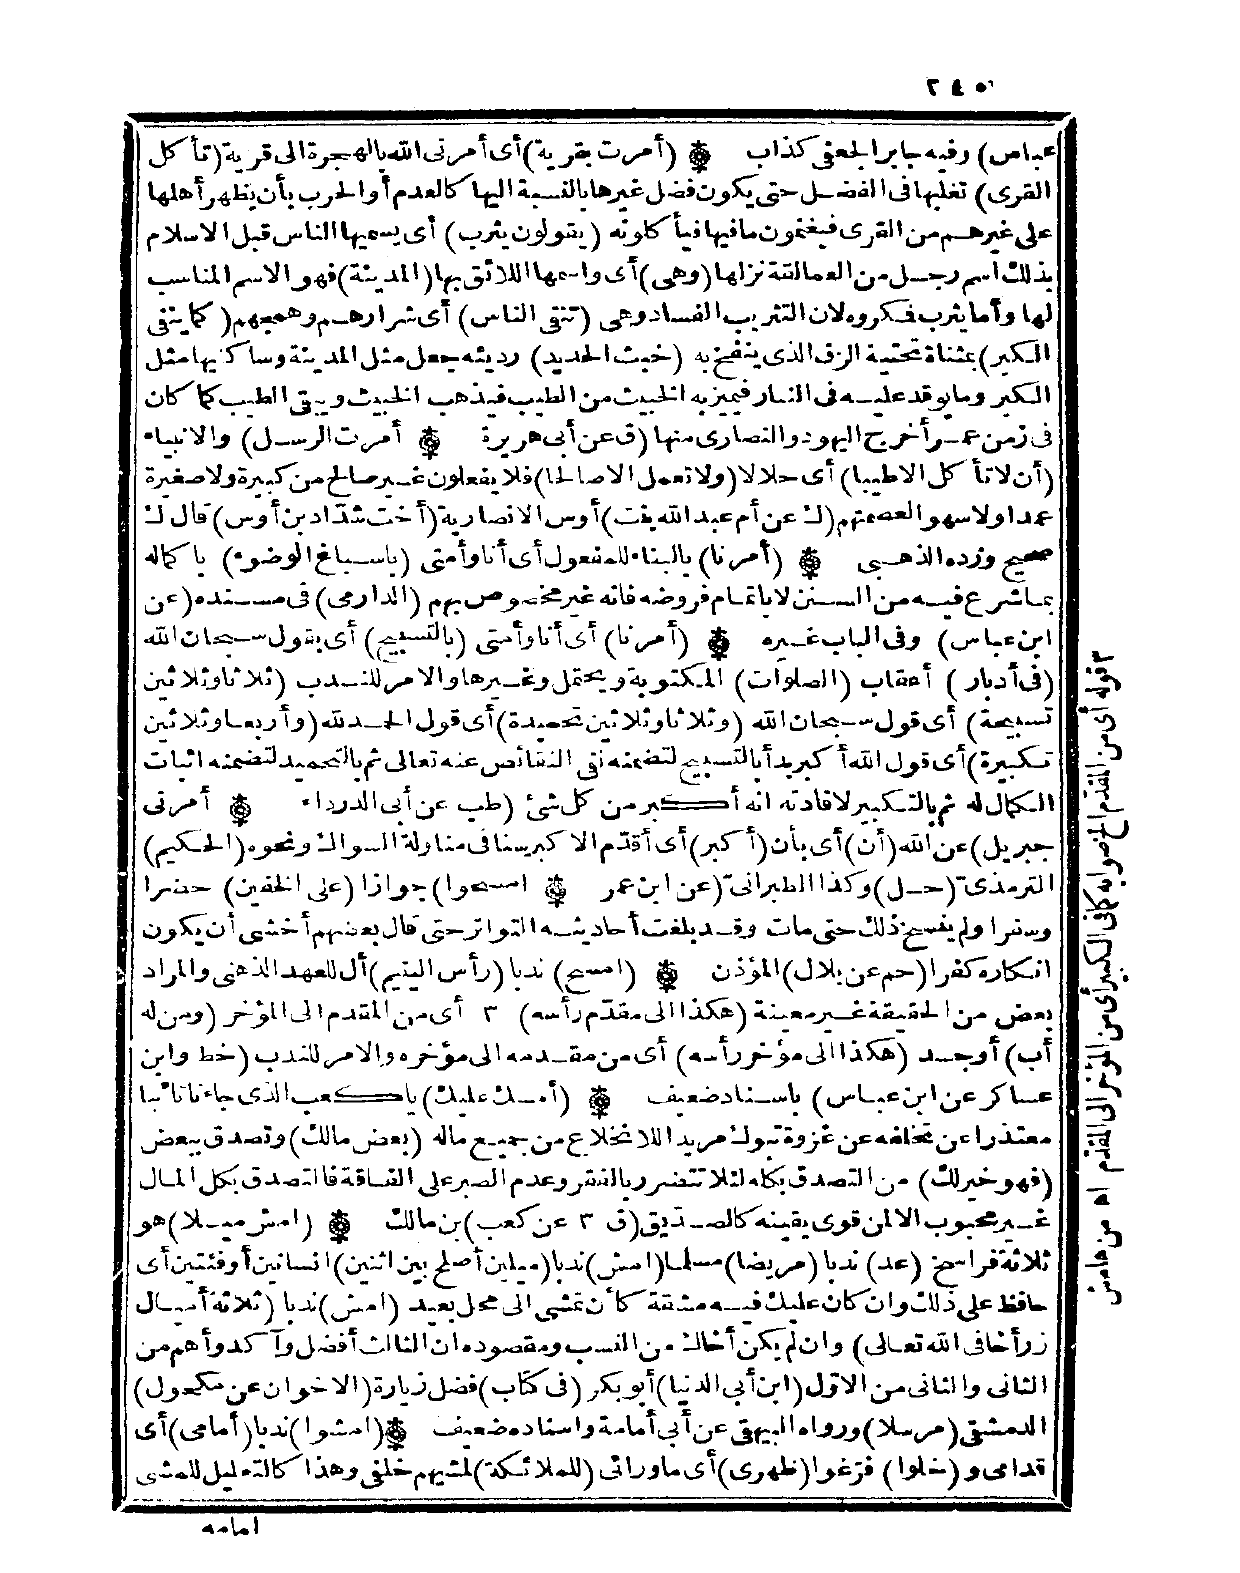 ٢٤٥
عباس) وفيه جابر الجعفى كذاب ۞ (أمرت بقرية) أى أمرنى الله بالهجرة الى قرية (تأكل
القرى) تغلبها فى الفضل حتى يكون فضل غيرها بالنسبة اليها كالعدم أو الحرب بأن يظهر أهلها
على غيرهم من القرى فيغنمون ما فيها فيأكلونه (يقولون يثرب) أى يسميها الناس قبل الاسلام
بذلك اسم رجل من العمالقة نزلها (وهى) أى واسمها اللائق بها (المدينة) فهو الاسم المناسب
لها وأما يثرب فكروه لان التثريب الفساد وهى (تنفى الناس) أى شرارهم وهمجهم (كما ينفى
الكير) بمثناة تحتية الزق الذى ينفخ به (خبث الحديد) رديئه جعل مثل المدينة وساكنيها مثل
الكير وما يوقد عليه فى النار فيميز به الخبيث من الطيب فيذهب الخبيث ويبقى الطيب كما كان
فى زمن عمر أخرج اليهود والنصارى منها (ق عن أبى هريرة ۞ أمرت الرسل) والانبياء
(أن لا تأكل الا طيبا) أى حلالا (ولا تعمل الا صالحا) فلا يفعلون غير صالح من كبيرة ولا صغيرة
عمدا ولا سهوا لعصمتهم (ك عن أم عبد الله بنت) أوس الانصارية (أخت شداد بن أوس) قال ك
صحيح ورده الذهبى ۞ (أمرنا) بالبناء للمفعول أى أنا وأمتى (باسباغ الوضوء) باكماله
بما شرع فيه من السنن لا باتمام فروضه فانه غير مخصوص بهم (الدارمى) فى مسنده (عن
ابن عباس) وفى الباب غيره ۞ (أمرنا) أى أنا وأمتى (بالتسبيح) أى بقول سبحان الله
(فى أدبار) أعقاب (الصلوات) المكتوبة ويحتمل وغيرها والامر للندب (ثلاثا وثلاثين
تسبيحة) أى قول سبحان الله (وثلاثا وثلاثين تحميدة) أى قول الحمد لله (وأربعا وثلاثين
تكبيرة) أى قول الله أكبر بدأ بالتسبيح لتضمنه نفى النقائص عنه تعالى ثم بالتحميد لتضمنه اثبات
الكمال له ثم بالتكبير لافادته انه أكبر من كل شئ (طب عن أبى الدرداء ۞ أمرنى
جبريل) عن الله (أن) أى بأن (أكبر) أى أقدم الاكبر سنا فى مناولة السواك ونحوه (الحكيم)
الترمذى (حل) وكذا الطبرانى (عن ابن عمر ۞ امسحوا) جوازا (على الخفين) حضرا
وسفرا ولم ينسخ ذلك حتى مات وقد بلغت أحاديثه التواتر حتى قال بعضهم أخشى أن يكون
انكاره كفرا (حم عن بلال) المؤذن ۞ (امسح) ندبا (رأس اليتيم) أل للعهد الذهنى والمراد
بعض من الحقيقة غير معينة (هكذا الى مقدم رأسه) ٣ أى من المقدم الى المؤخر (ومن له
أب) أوجد (هكذا الى مؤخر رأسه) أى من مقدمه الى مؤخره والامر للندب (خط وابن
عساكر عن ابن عباس) باسناد ضعيف ۞ (أمسك عليك) يا كعب الذى جاءنا تائبا
معتذرا عن تخلفه عن غزوة تبوك مريدا للانخلاع من جميع ماله (بعض مالك) وتصدق ببعض
(فهو خير لك) من التصدق بكله لئلا تتضرر بالفقر وعدم الصبر على الفاقة فالتصدق بكل المال
غير محبوب الا لمن قوى يقينه كالصديق (ق ٣ عن كعب) بن مالك ۞ (امش ميلا) هو
ثلاثة فراسخ (عد) ندبا (مريضا) مسلما (امش) ندبا (ميلين أصلح بين اثنين) انسانين أو فئتين أى
حافظ على ذلك وان كان عليك فيه مشقة كأن تمشى الى محل بعيد (امش) ندبا (ثلاثة أميال
زر أخا فى الله تعالى) وان لم يكن أخاك من النسب ومقصوده ان الثالث أفضل وآكد وأهم من
الثانى والثانى من الاول (ابن أبى الدنيا) أبو بكر (فى كتاب) فضل زيارة (الاخوان عن مكحول)
الدمشقى (مرسلا) ورواه البيهقى عن أبى أمامة واسناده ضعيف ۞ (امشوا) ندبا (أمامى) أى
قدامى و(خلوا) فرغوا (ظهرى) أى ماورائى (للملائكة) لمشيهم خلفى وهذا كالتعليل للمشى
امامه
٣ قوله أى من المقدم الخ صوابه كما فى الكبير أى من المؤخر الى المقدم اه من هامش